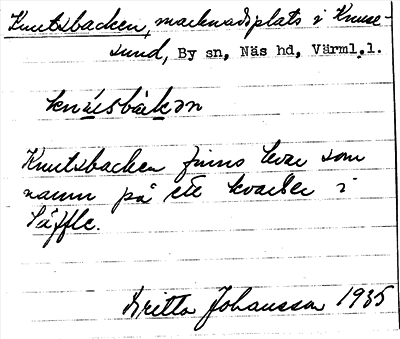 Knutsbacken, marknadsplats i Knuse-
sund, By sn, Näs hd, Värml.l.
knu̠tsba̠kən
Knutsbacken finns kvar som
namn på ett kvarter i
Säffle.
Britta Johansson 1935